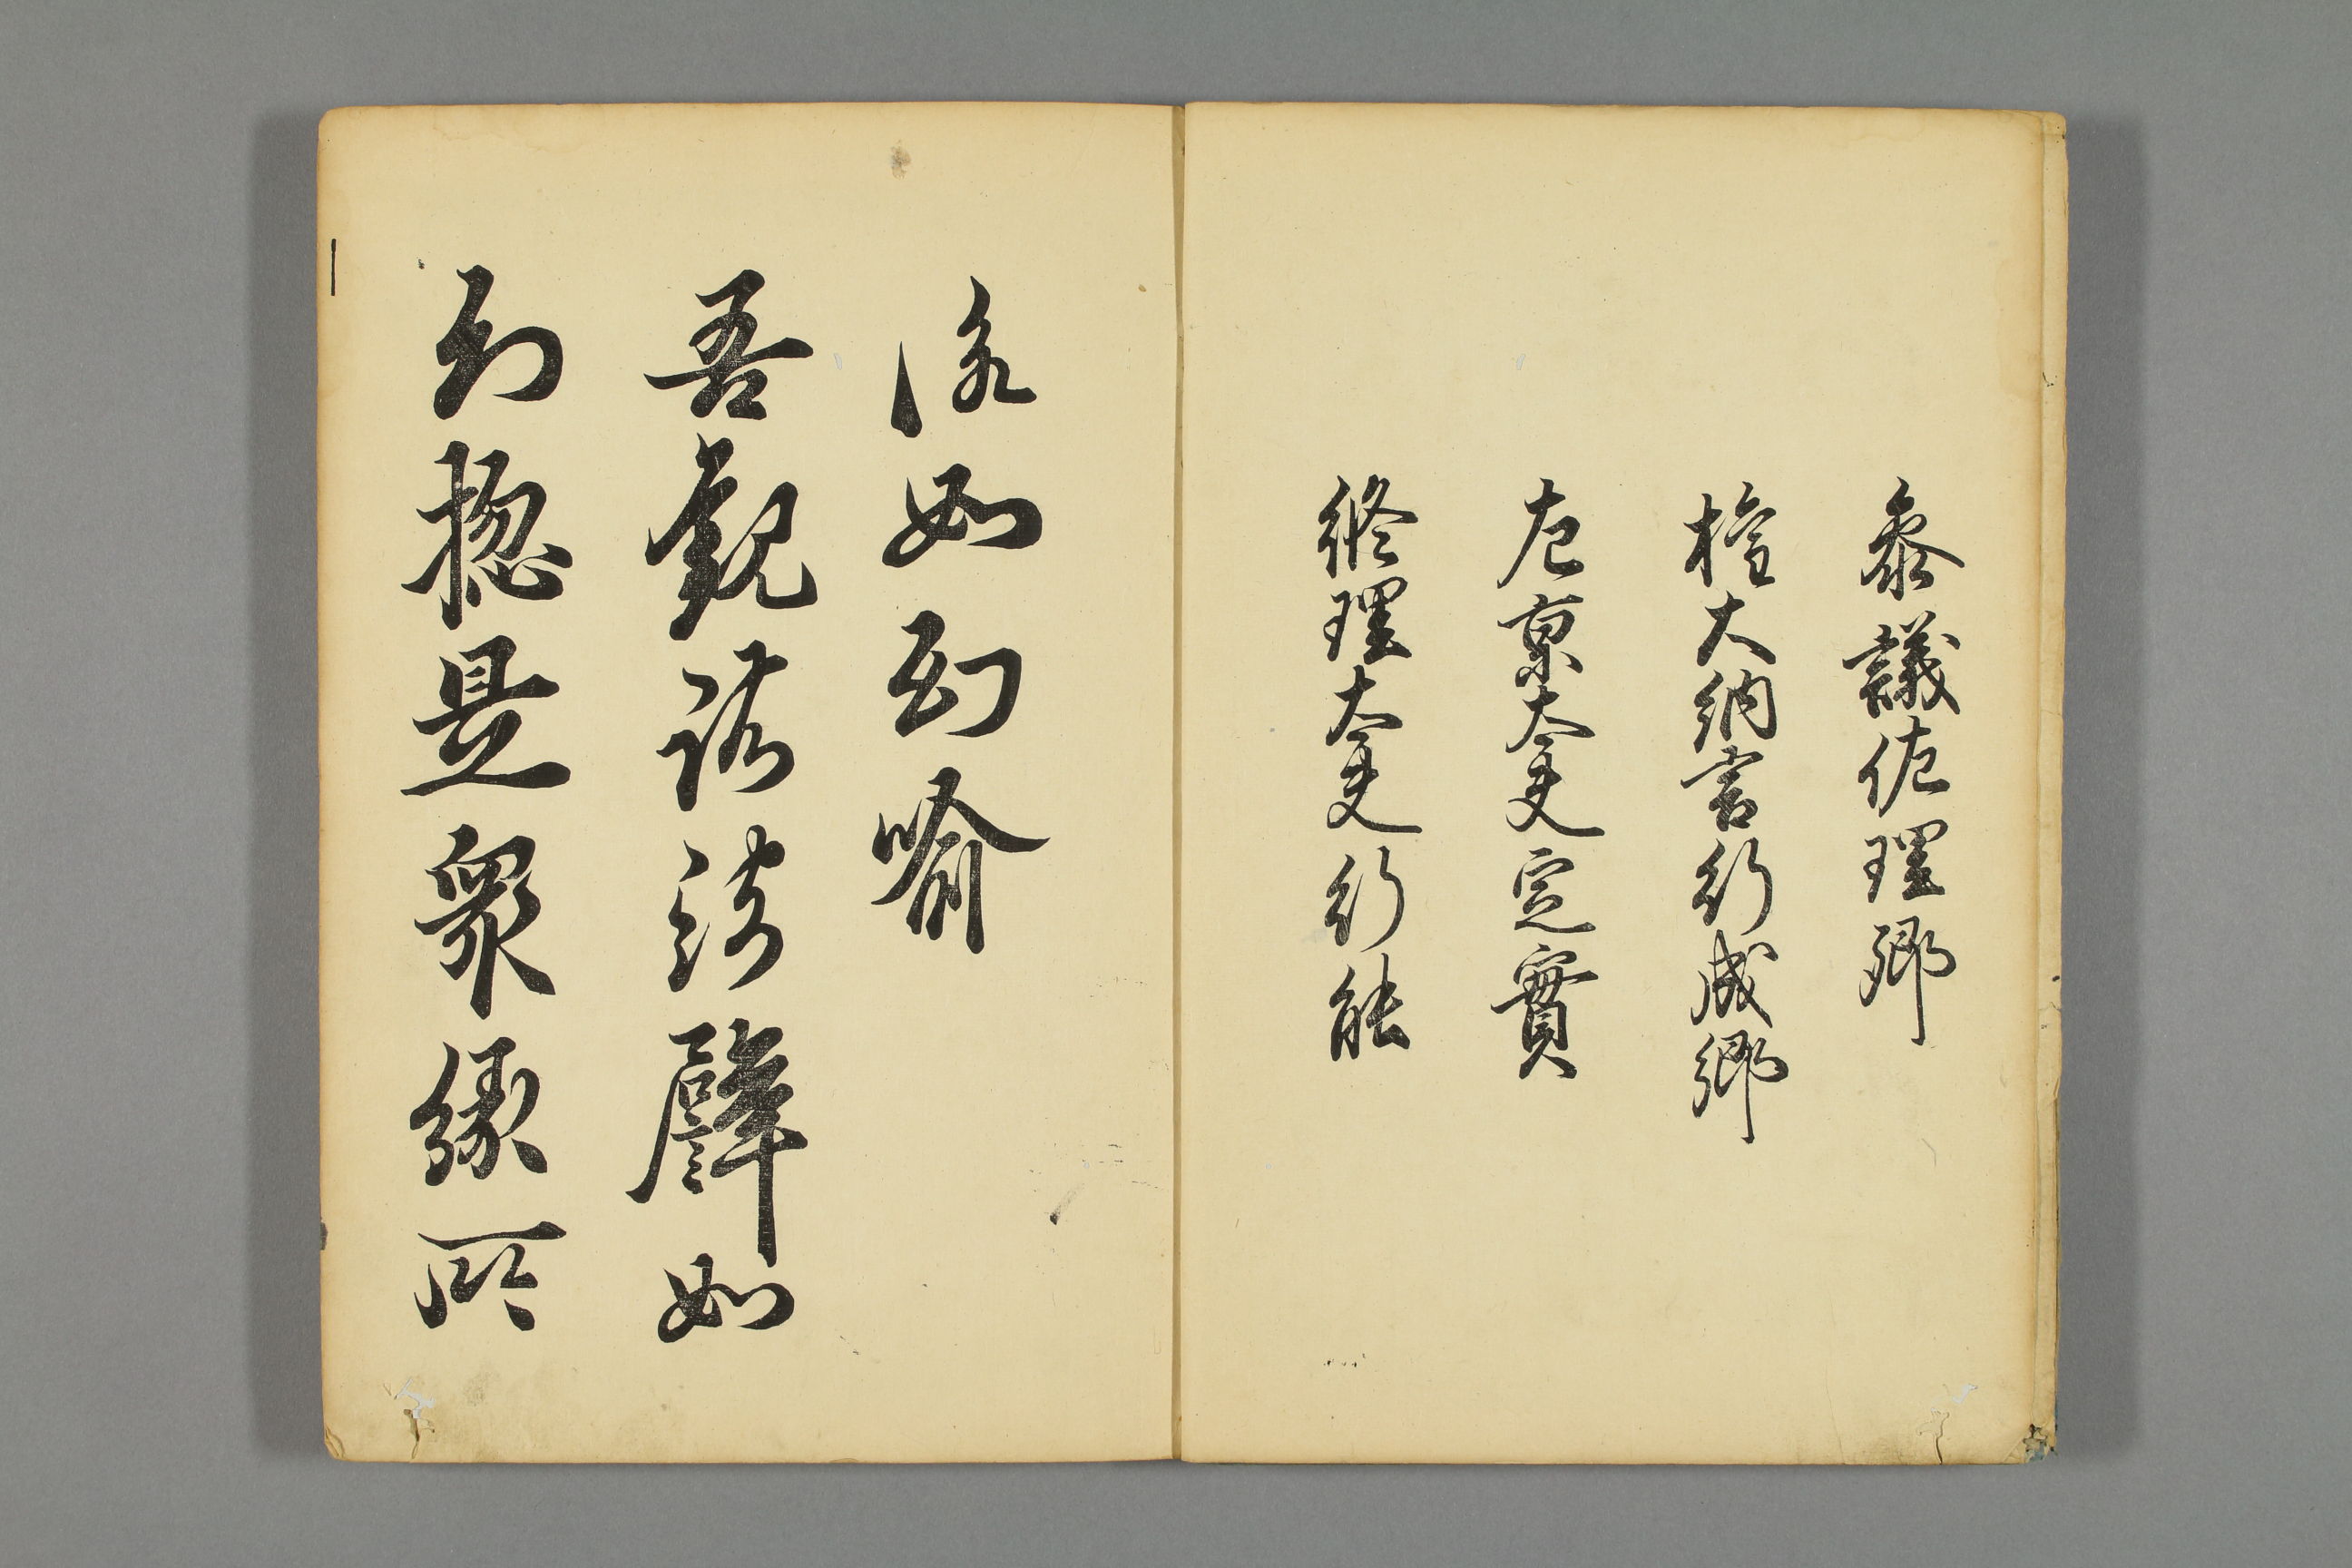 參議佐理卿
權大納言行成卿
左京大夫定實
修理大夫行能
詠如幻喻
吾觀諸法譬如
幻惣是眾緣所